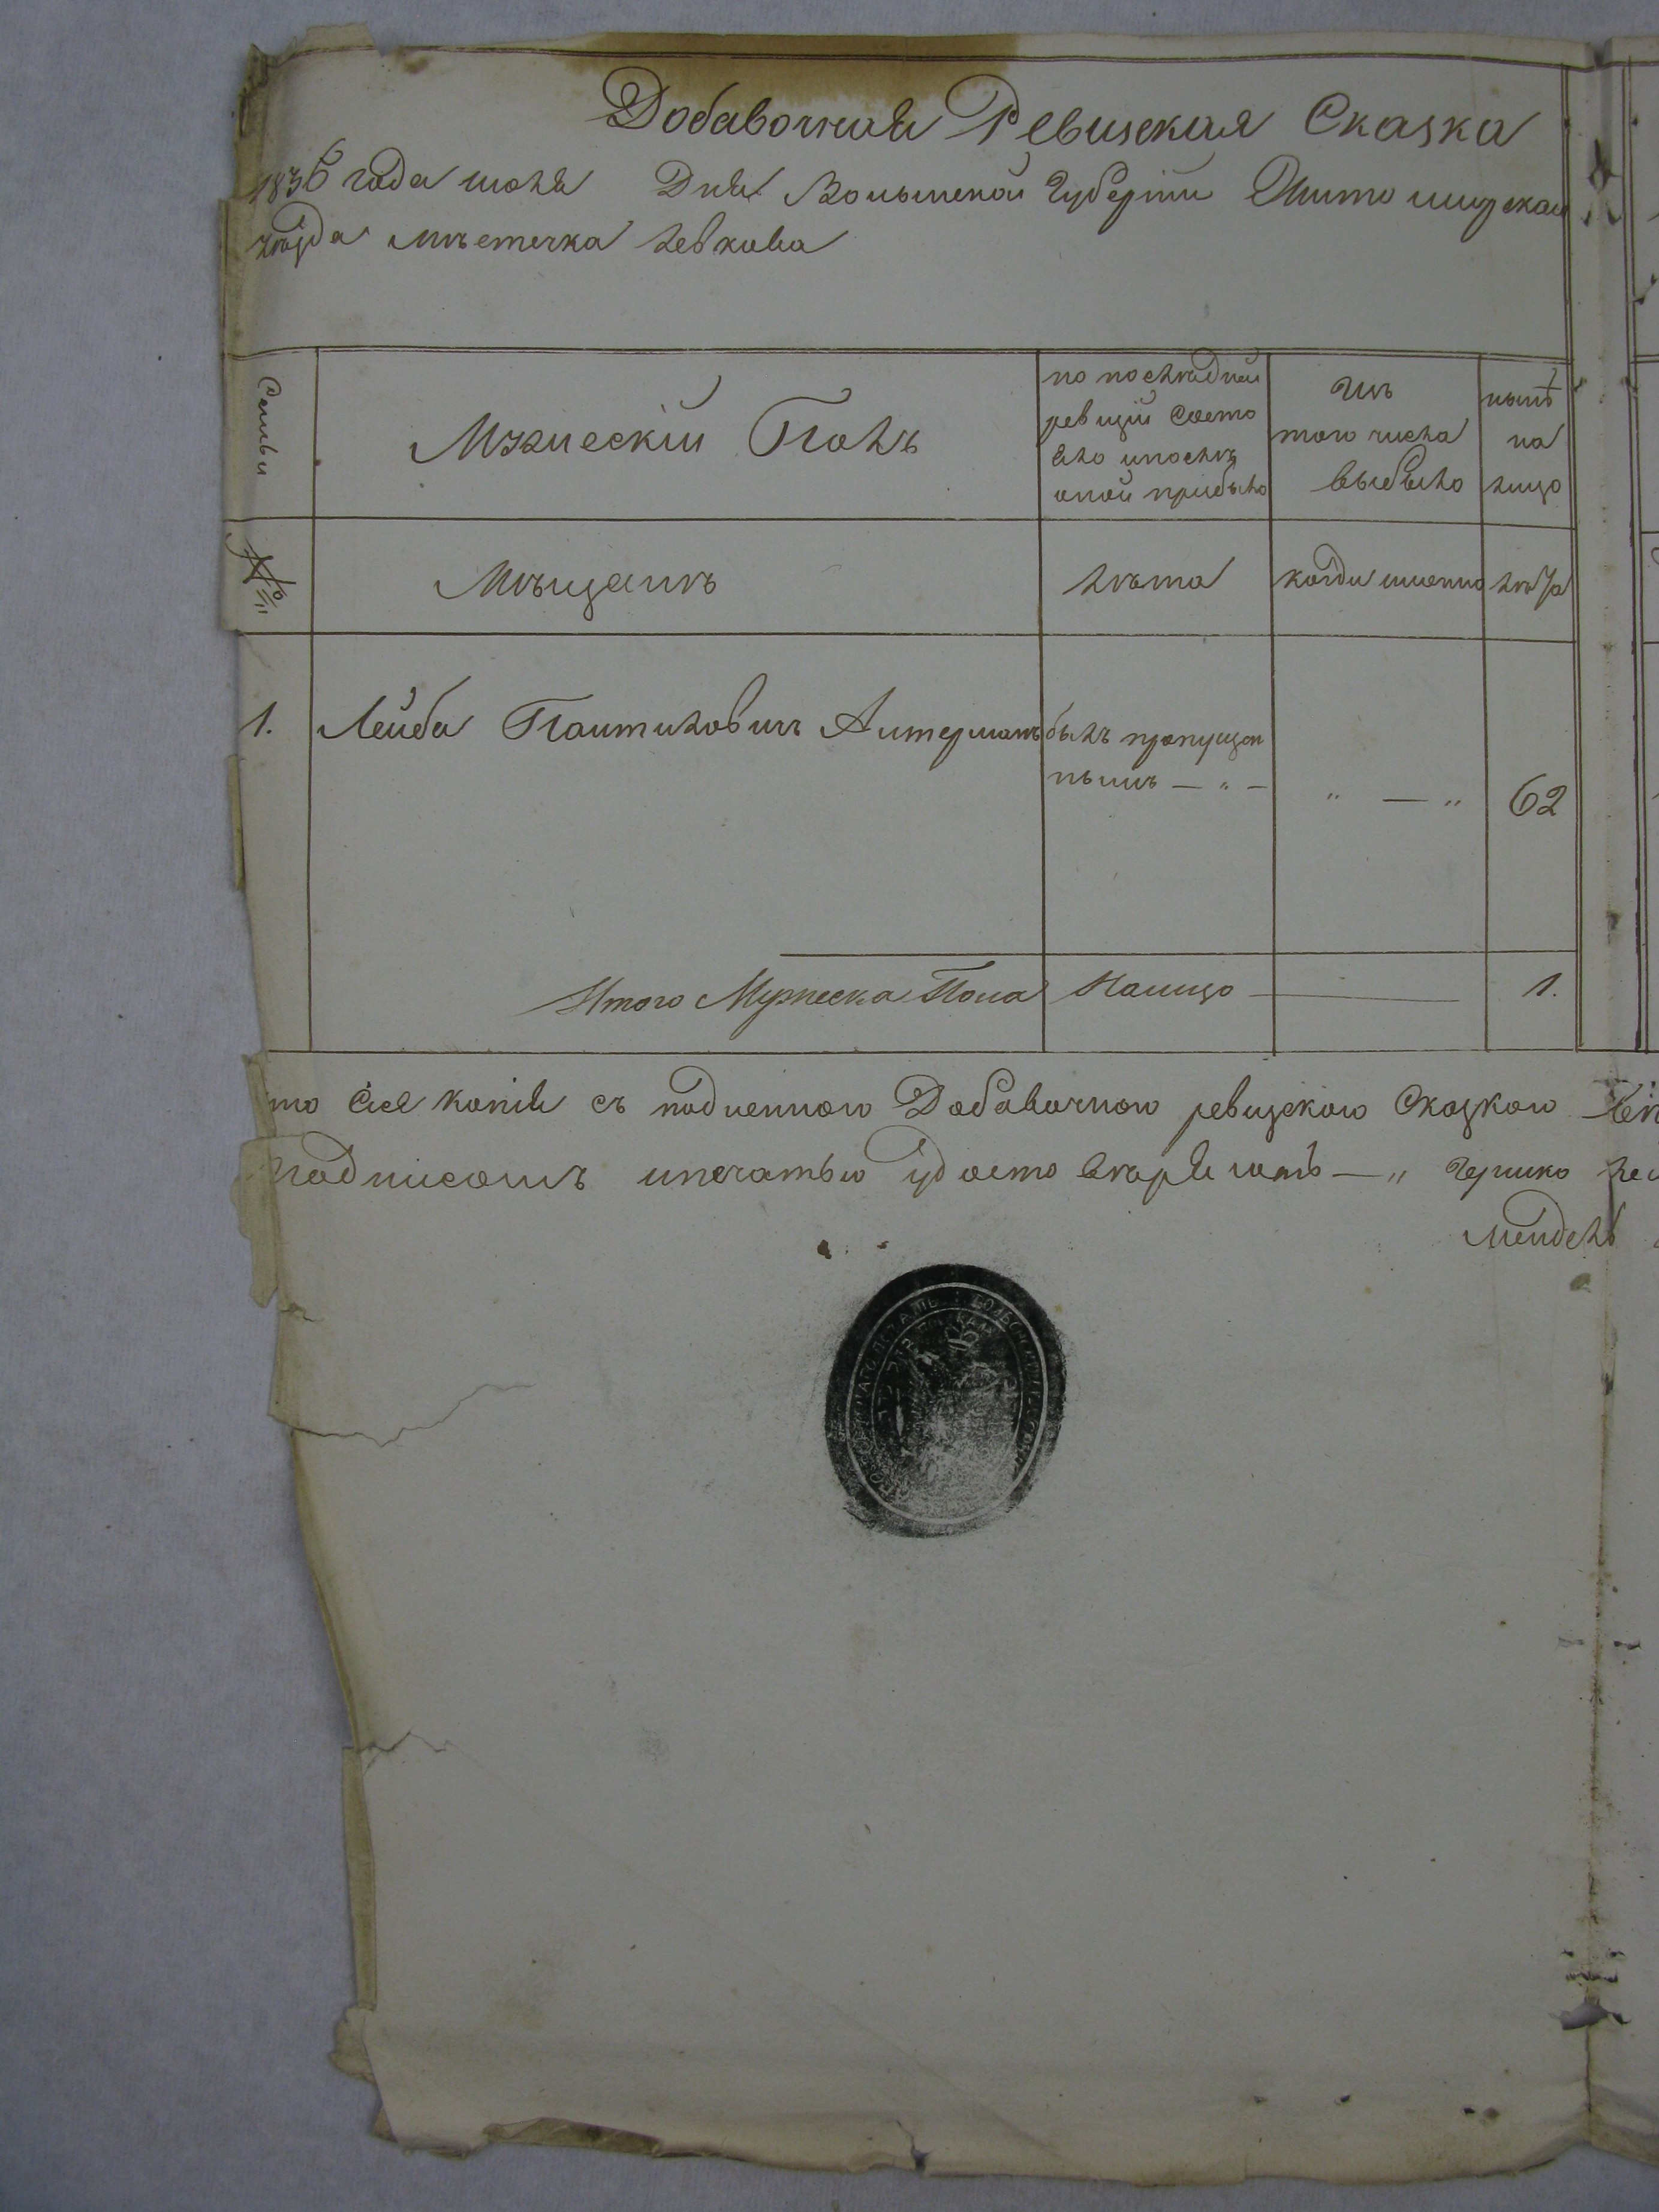 Добавочная Ревизская Сказка
1836 года июня Дня Волынской Губернiи Житомирскаго
уѣзда мѣстечка Левкова
Семьи
Мужескiй Полъ
по последней
ревизiи состо
яло и послѣ
оной прибыло
Изъ
того числа
выбыло
нынѣ
на
лицо
№
Мѣщанъ
лѣта
когда именно
лѣта
1. Лейба Пантиловичъ Антерманъ былъ пропущен
нымъ — „ —
„ — „
62
Итого Мужеска Пола Налицо 1.
то сiя копiя съ подленною Добавочною ревизскою Сказкою
подписомъ и печатью удостовѣряемъ — „ Гершко
Мендель